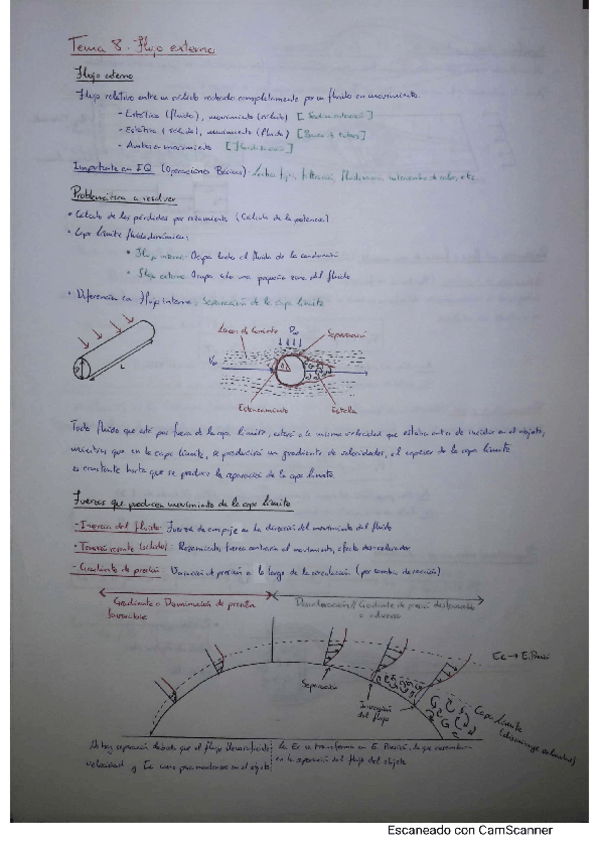 Tema 8. Flujo externo
Flujo externo
Flujo relativo entre un sólido rodeado completamente por un fluido en movimiento.
- Estático (fluido), movimiento (sólido) [Sedimentación]
- Estático (sólido), movimiento (fluido) [ de tubos]
- Ambos en movimiento [Fluidización]
Importante en IQ (Operaciones Básicas): Lechos fijos, filtración, fluidización, de calor, etc.
Problemática a resolver
• Cálculo de las pérdidas por rozamiento (Cálculo de la potencia)
• Capa límite fluidodinámica:
• Flujo interno: Ocupa todo el fluido de la conducción
• Flujo externo: Ocupa sólo una pequeña zona del fluido
• Diferencia con Flujo interno: Separación de la capa límite
Líneas de corriente
Separación
D
L
Estancamiento
Estela
Todo fluido que esté por fuera de la capa límite, estará a la misma velocidad que estaba antes de incidir en el objeto,
mientras que en la capa límite, se producirá un gradiente de velocidades, el espesor de la capa límite
es constante hasta que se produce la separación de la capa límite
Fuerzas que producen movimiento de la capa límite
- Inercia del fluido: Fuerza de empuje en la dirección del movimiento del fluido
- Tensión rasante (sólido): Rozamiento, fuerza contraria al movimiento, efecto desacelerador
- Gradiente de presión: Variación de presión a lo largo de la circulación (por cambio de sección)
Gradiente o Disminución de presión
favorable
Desaceleración / Gradiente de presión desfavorable
o adverso
Ec → E. Presión
Separación
Inversión
del flujo
Capa límite
No hay separación debido que el flujo fluido
velocidad y Ec como para mantenerse en el objeto
La Ec se transforma en E. Presión, lo que
en la separación del flujo del objeto
Escaneado con CamScanner